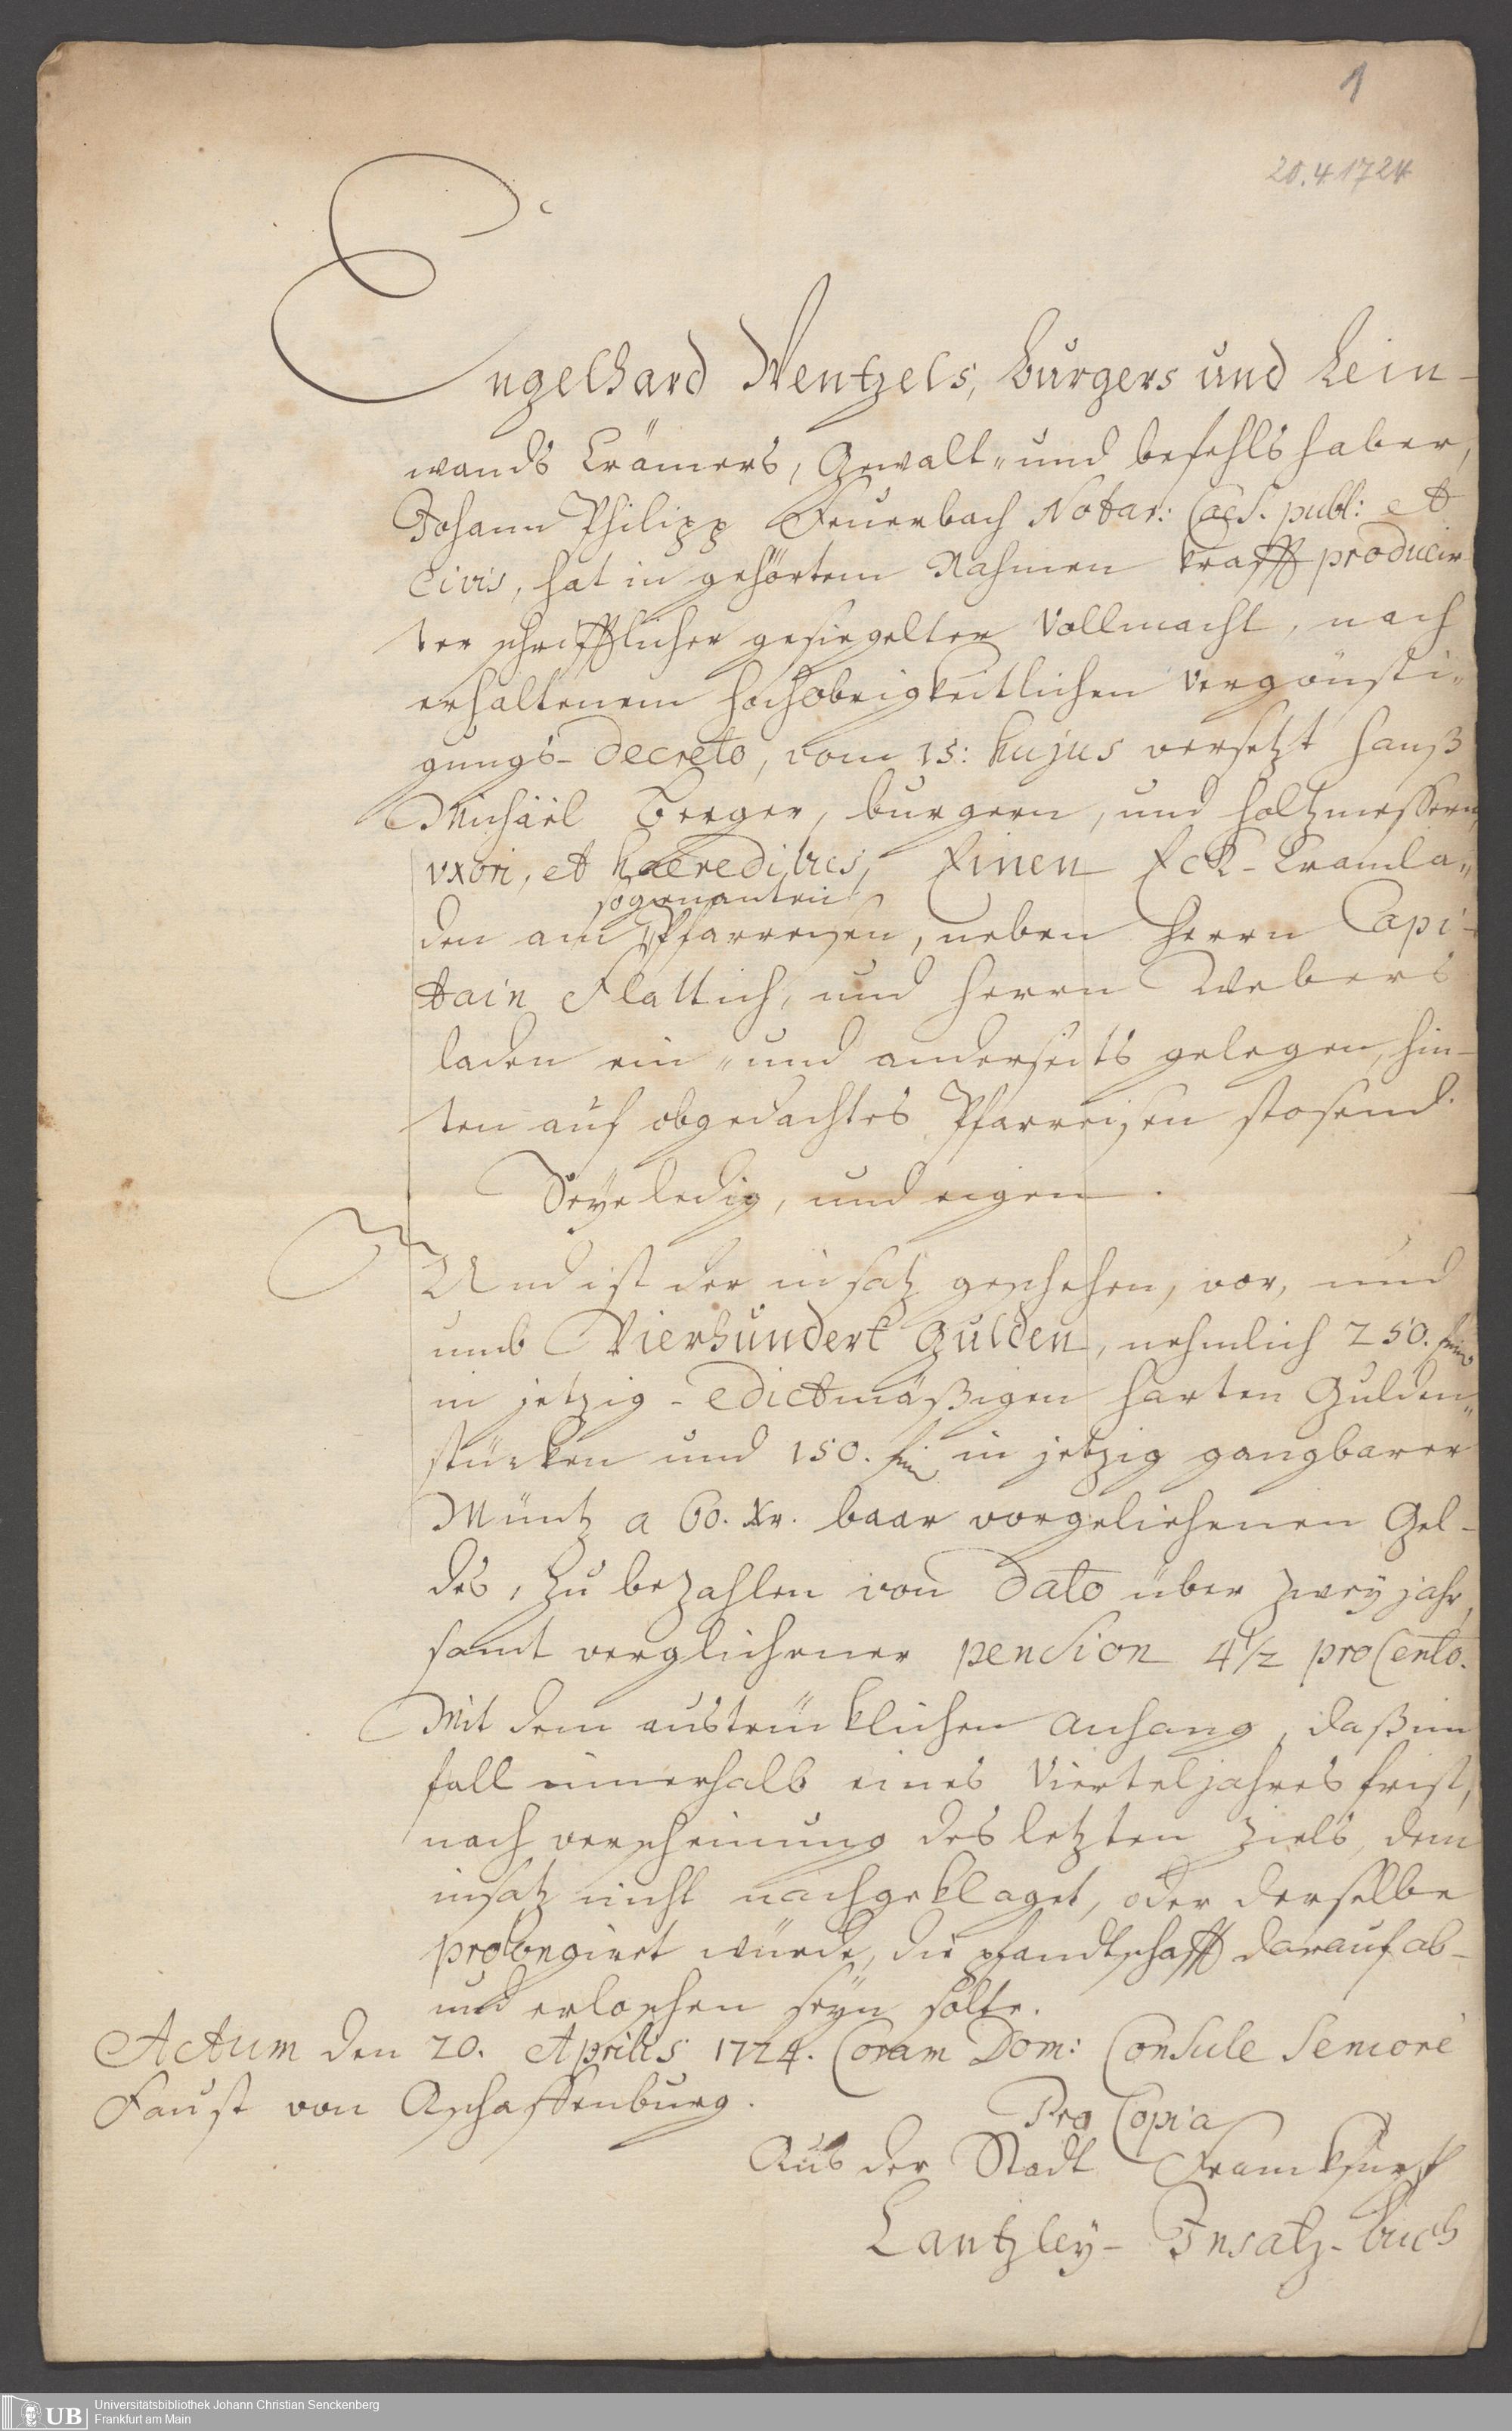 1
20.4.1724
Engelhard Wentzels, burgers und Lein-
wands Crämers, Gewalt- und befehlshaber,
Johann Philipp Feuerbach Notar: Caes. publ: et
Civis, hat in gehörtem Nahmen krafft producir-
ter schrifftlicher gesiegelter Vollmacht, nach
erhaltenem hochobrigkeitlichen Vergönsti-
gungs-Decreto, vom 15: hujus versetzt Hanß
Michäel Berger, burgern, und holtzmeßern,
uxori, et haeredibus, Einen Eck-Cramla-
sogenanten
den am Pfarreisen, neben Herrn Capi-
tain Flattich, und Herrn Webers
laden ein- und anderseits gelegen, hin-
ten auf obgedachtes Pfarreisen stosend.
Seye ledig, und eigen.
Und ist der insatz geschehen, vor, und
umb Vierhundert Gulden, nehmlich 250. f
in jetzig-Edictmäßigen harten Gulden-
stücken und 150. f in jetzig gangbarer
Müntz a 60. Xr. baar vorgeliehenen Gel-
des, zu bezahlen von Dato über zwey jahr,
samt verglichener pension 4 1/2 pro Cento.
Mit dem austrücklichen Anhang, daß im
fall innerhalb eines Vierteljahres frist,
nach verscheinung des letzten Ziels, dem
insatz nicht nachgeklaget, oder derselbe
prolongiret würde, die pfandtschafft darauf ab-
und erloschen seyn solte.
Actum den 20. Aprilis 1724. Coram Dom: Consule Seniore
Faust von Aschaffenburg.
Pro Copia
Aus der Stadt Franckfurth
Cantzley- Insatz-buch
UB
Universitätsbibliothek Johann Christian Senckenberg
Frankfurt am Main